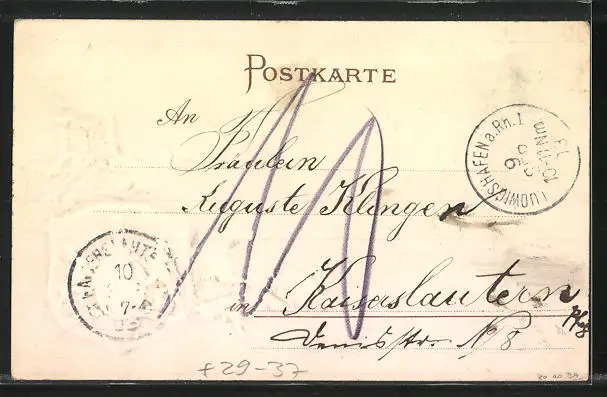 POSTKARTE
An
Fräulein
Auguste Klingen
in Kaiserslautern
Pfalz
str. No 8
10
LUDWIGSHAFEN a. Rh. I
KAISERSLAUTERN
10
7-
£29-37